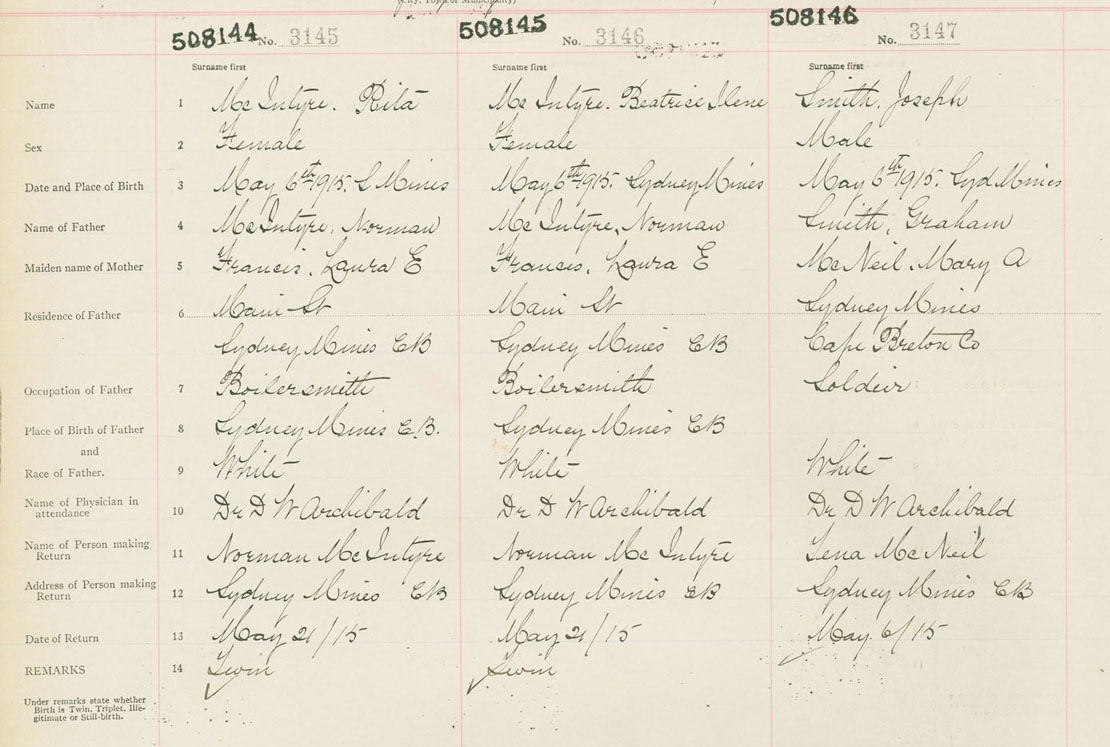 (City, Town or Municipality)
508144 No. 3145 508145 No. 3146 508146 No. 3147
Surname first Surname first Surname first
Name 1 McIntyre. Rita McIntyre. Beatrice Ilene Smith, Joseph
Sex 2 Female Female Male
Date and Place of Birth 3 May 6th 1915. S Mines May 6th 1915. Sydney Mines May 6th 1915. Syd Mines
Name of Father 4 McIntyre, Norman McIntyre, Norman Smith, Graham
Maiden name of Mother 5 Francis, Laura E Francis, Laura E McNeil. Mary A
Residence of Father 6 Main St Main St Sydney Mines
Sydney Mines CB Sydney Mines CB Cape Breton Co
Occupation of Father 7 Boilersmith Boilersmith Soldier
Place of Birth of Father 8 Sydney Mines C.B. Sydney Mines CB
and
Race of Father. 9 White White White
Name of Physician in
attendance 10 Dr D W Archibald Dr D W Archibald Dr D W Archibald
Name of Person making
Return 11 Norman McIntyre Norman McIntyre Lena McNeil
Address of Person making
Return 12 Sydney Mines CB Sydney Mines CB Sydney Mines CB
Date of Return 13 May 21/15 May 21/15 May 6/15
REMARKS 14 Twin Twin
Under remarks state whether
Birth is Twin, Triplet, Ille-
gitimate or Still-birth.